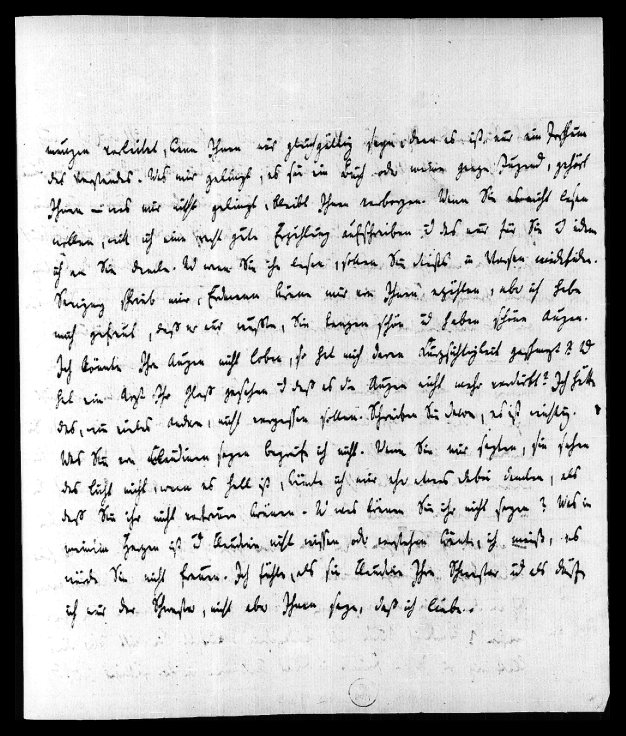 meinigen verleitet, kann Ihnen nur gleichgültig sein, denn es ist nur ein Irrtum
des Verstandes. Was mir gelingt, es sei ein Buch oder meine ganze Jugend, gehört
Ihnen – was mir nicht gelingt, bleibt Ihnen verborgen. Wenn Sie es nicht lesen
wollen, will ich eine recht gute Erzählung aufschreiben u das nur für Sie u indem
ich an Sie denke. U wenn Sie sie lesen, sollen Sie nichts u
schrieb mir, könne nur von Ihnen, aber ich habe
mich gefreut, daß er nur wußte, Sie seien schön u haben schöne Augen.
Ich könnte Ihre Augen nicht loben, so hat mich deren Kurzsichtigkeit? U
hat ein Arzt Ihr Glas gesehen u daß es die Augen nicht mehr verdirbt? Ich hätte
das, wie vieles andere, nicht vergessen sollen. Schreiben Sie davon, es ist wichtig.
Was Sie von Claudinen sagen begreife ich nicht. Wenn Sie mir sagten, sie sehen
das Licht nicht, wenn es hell ist, könnte ich mir eher etwas dabei denken, als
daß Sie ihr nicht vertrauen können. U was können Sie ihr nicht sagen? Was in
meinem Herzen ist u Claudine nicht wissen oder verstehen könnte, ich weiß, es
würde Sie nicht freuen. Ich fühle, als sei Claudine Ihre Schwester und als dürfe
ich nur der Schwester, nicht aber Ihnen sagen, daß ich liebe.